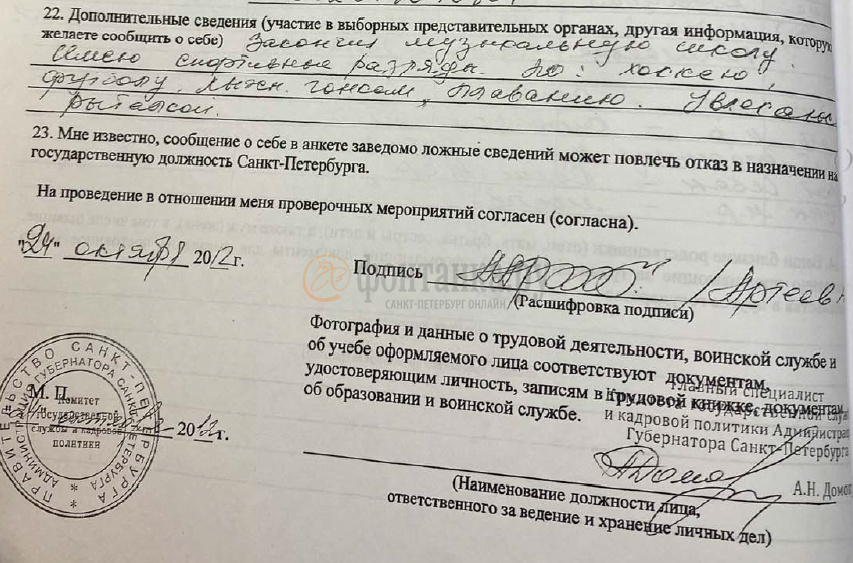 22. Дополнительные сведения (участие в выборных представительных органах, другая информация, которую
желаете сообщить о себе) Закончил музыкальную школу.
Имею спортивные разряды по: хоккею,
футболу, лыжн. гонкам, плаванию. Увлекаюсь
рыбалкой.
23. Мне известно, сообщение о себе в анкете заведомо ложные сведений может повлечь отказ в назначении на
государственную должность Санкт-Петербурга.
На проведение в отношении меня проверочных мероприятий согласен (согласна).
"24" октября 2012 г.
Подпись / Артеев
фонтанка.ру
САНКТ-ПЕТЕРБУРГ ОНЛАЙН
(Расшифровка подписи)
Фотография и данные о трудовой деятельности, воинской службе и
об учебе оформляемого лица соответствуют документам,
удостоверяющим личность, записям в трудовой книжке, документам
об образовании и воинской службе.
Главный специалист
Комитета государственной служ
и кадровой политики Администрац
Губернатора Санкт-Петербурга
А.Н. Домо
(Наименование должности лица,
ответственного за ведение и хранение личных дел)
М. П.
2012 г.
ПРАВИТЕЛЬСТВО САНКТ-ПЕТЕРБУРГА
АДМИНИСТРАЦИЯ ГУБЕРНАТОРА САНКТ-ПЕТЕРБУРГА
Комитет
государственной
службы и кадровой
политики